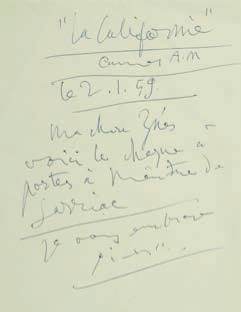 "La Californie"
Cannes A.M
le 2.1.59
ma chère Ynès
voici le cheque a
porter à Maître de
je vous embrasse